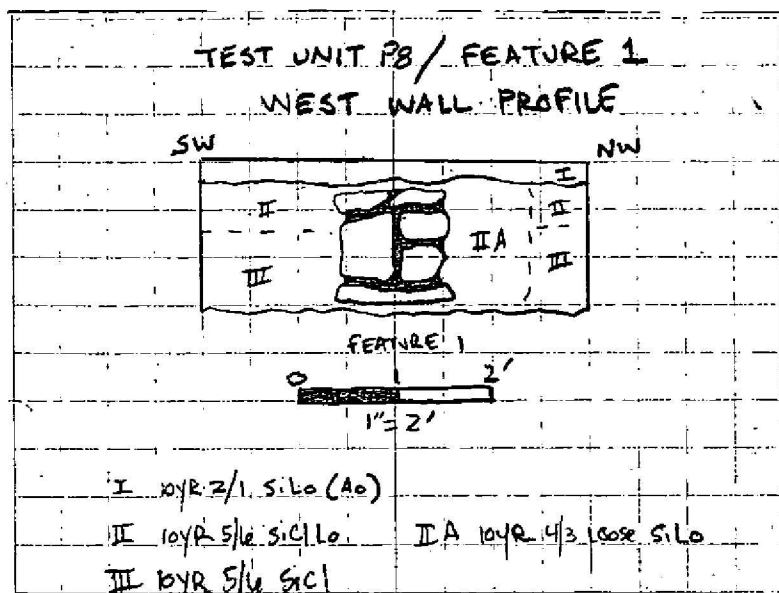 TEST UNIT P8 / FEATURE 1
WEST WALL PROFILE
SW NW
I
II II
II A
III III
FEATURE 1
0 1 2'
1" = 2'
I 10YR 2/1 SiLo (Ao)
II 10YR 5/6 SiClLo II A 10YR 4/3 loose SiLo
III 10YR 5/6 SiCl